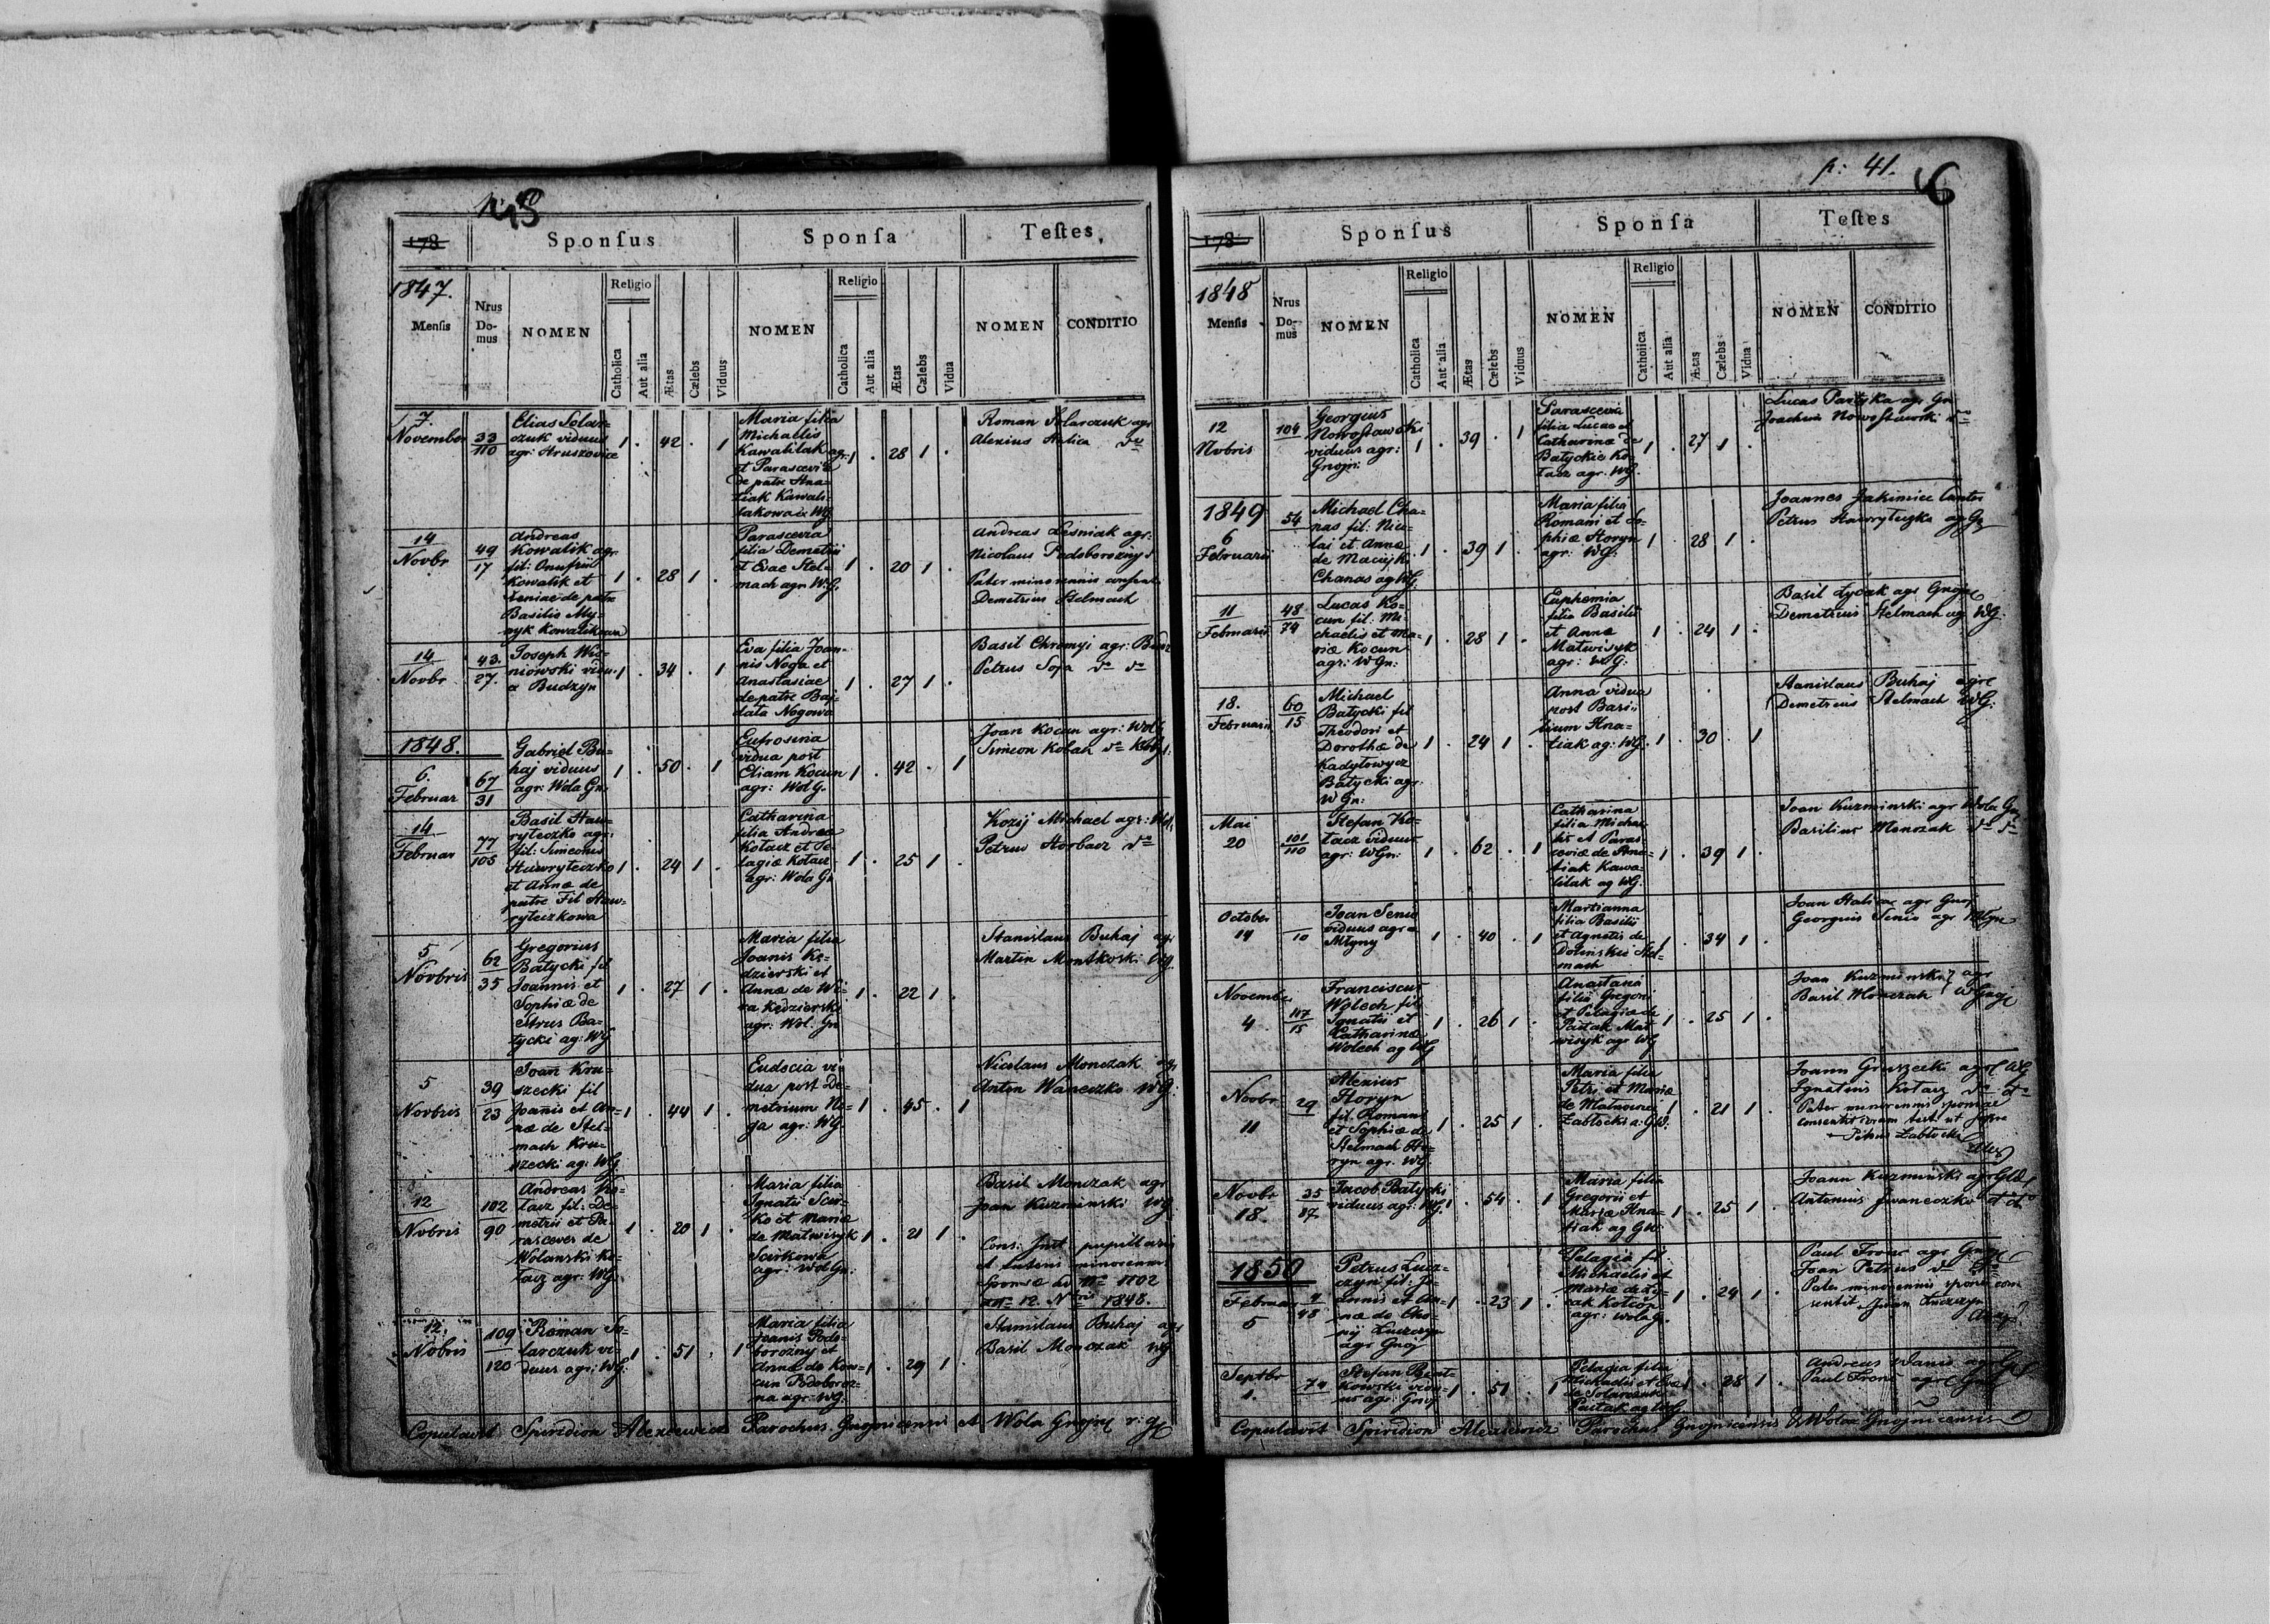 p: 40
45
178 Sponſus Sponſa Teſtes
1847.
Menſis Nrus Domus NOMEN Religio Catholica Aut alia Ætas Cælebs Viduus NOMEN Religio Catholica Aut alia Ætas Cælebs Vidua NOMEN CONDITIO
7.
November
33
110
Elias Solar-
czuk viduus
agr: Hruszowice
1 . 42 . 1
Maria filia
Michaelis
Kawalilak agr:
et Parascevia
de patre Hna-
tiak Kawali-
lakowa ex WG
1 . 28 1 .
Roman Solarczuk agr
Alexius Halica do
14
Novbr
49
17
Andreas
Kowalik agr
fil: Onufrii
Kowalik et
Xeniae de patre
Basilio My-
nyk Kowalikowa
1 . 28 1 .
Parascevia
filia Demetrii
et Evae Stel-
mach agr. W.G.
1 . 20 1 .
Andreas Lesniak agr:
Nicolaus Podborozny d
Pater minorennis consent
Demetrius Stelmach
14
Novbr
43.
27.
Joseph Wis-
niowski vidu-
a Budzyn
1 . 34 . 1
Eva filia Joan-
nis Noga et
Anastasiae
de patre Baj-
data Nogowa
1 . 27 1 .
Basil Chromyi agr: Budz
Petrus Sopa do do
1848.
6.
Februar
67
31
Gabriel Bu-
haj viduus
agr: Wola Gn.
1 . 50 . 1
Eufrosina
vidua post
Eliam Kocun
agr: Wol G.
1 . 42 . 1
Joan Kocun agr: Wol G
Simeon Kolan do
14
Februar
77
105
Basil Haw-
ryleczko agr:
fil: Simeonis
Hawryleczko
et Annæ de
patre Fil Haw-
ryleczkowa
1 . 24 1 .
Catharina
filia Andreæ
Kołacz et Pe-
lagiæ Kołacz
agr: Wola Gn
1 . 25 1 .
Kozij Michael agr: Wol.
Petrus Horbacz do
5
Novbris
62
35
Gregorius
Batycki fil
Joannis et
Sophiæ de
Strus Ba-
tycki ag: WG
1 . 27 1 .
Maria filia
Joanis Kę-
dzierski et
Annæ de Wi-
ra Kędzierski
agr: Wol. Gn
1 . 22 1 .
Stanislaus Buhaj agr
Martin Montkoski WG.
5
Novbris
39
23
Joan Kru-
szecki fil
Joanis et An-
næ de Stel-
mach Kru-
szecki ag: WG
1 . 44 1 .
Eudocia vi-
dua post De-
metrium No-
ga agr: WG
1 . 45 . 1
Nicolaus Monczak agr
Anton Waneczko WG:
12
Novbris
102
90
Andreas Ko-
łacz fil: De-
metrii et Pa-
rascever de
Wolanski Ko-
łacz agr: WG.
1 . 20 1 .
Maria filia
Ignatii Scir-
ko et Mariæ
de Matwisyk
Scirkowa
agr: Wol Gn:
1 . 21 1 .
Basil Monczak agr
Joan Kuzminski WG
Cons: Jud. pupillaris
et tutoris minorennis
sponsæ 1802
12. Nbris 1848.
12.
Nobris
109
120
Roman So-
larczuk vi-
duus agr: WG.
1 . 51 . 1
Maria filia
Joanis Podo-
borozny et
Annæ de Kow-
cun Podoboroz-
na agr: WG.
1 . 29 1 .
Stanislaus Buhaj agr
Basil Monczak WG
Copulavit Spiridion Alexiewicz Parochus Gnojnicensis et Wola Gnojn
p: 41.
6
178 Sponſus Sponſa Teſtes
1848
Menſis Nrus Domus NOMEN Religio Catholica Aut alia Ætas Cælebs Viduus NOMEN Religio Catholica Aut alia Ætas Cælebs Vidua NOMEN CONDITIO
12
Nobris
104
Georgius
Nowosławski
viduus agr:
Gnojn:
1 . 39 . 1
Parascevia
filia Lucae et
Catharinæ de
Batyckie Ko-
łacz agr. WG.
1 . 27 1 .
Lucas Partyka agr Gn
Joachim Nowosławski do
1849
6
Februarii
54
Michael Cha-
nas fil: Nico-
lai et Annæ
de Maciyk
Chanas ag WG.
1 . 39 1 .
Maria filia
Romani et So-
phiæ Horyn
agr: WG:
1 . 28 1 .
Joannes Jakimiec Cantor
Petrus Hawryleczko ag Gn
11
Februarii
48
74
Lucas Ko-
cun fil: Mi-
chaelis et Ma-
riæ Kocun
agr: WGn:
1 . 28 1 .
Euphemia
filia Basilii
et Annæ
Matwisyk
agr: WG:
1 . 24 1 .
Basil Łysak agr Gnojn
Demetrius Stelmach ag WG.
18.
Februarii
60
15
Michael
Batycki fil
Theodori et
Dorothæ de
Kadyłowycz
Batycki agr.
W Gn:
1 . 24 1 .
Anna vidua
post Basi-
lium Hna-
tiak ag: WG.
1 . 30 . 1
Stanislaus Buhaj agr
Demetrius Stelmach WG.
Mai
20
101
110
Stefan Ko-
łacz viduus
agr: WGn:
1 . 62 . 1
Catharina
filia Michae-
lis et Paras-
ceviæ de Hna-
tiak Kawa-
lilak ag WG.
1 . 39 1 .
Joan Kuzminski agr Wola Gn
Basilius Monczak do do
October
14
10
Joan Senio
viduus agr a
Młyny
1 . 40 . 1
Martianna
filia Basilii
et Agnetis de
Dolinskie Stel-
mach
1 . 34 1 .
Joan Halicz agr Gnoj
Georgius Senio agr Młyn
Novembr
4
117
15
Franciscus
Wolech fil
Ignatii et
Catharinæ
Wolech ag WG
1 . 26 1 .
Anastasia
filia Gregori
et Pelagiæ de
Pastak Mat-
wisyk agr WG
1 . 25 1 .
Joan Kuzminski agr
Basil Monczak WGnoj
Novbr
11
29
Alexius
Horyn
fil. Romani
et Sophiæ de
Stelmach Ho-
ryn agr. WG.
1 . 25 1 .
Maria filia
Petri et Mariæ
de Matwisyk
Zabłocki a: GW.
1 . 21 1 .
Joann Gruszecki agr WG
Ignatius Kołacz do do
Pater minorennis sponsae
consentit coram test ut supra
+ Petrus Zabłocki
Novbr
18.
35
87
Jacob Batycki
viduus agr: WG.
1 . 54 . 1
Maria filia
Gregorii et
Mariæ Hna-
tiak ag GW.
1 . 25 1 .
Joann Kuzminski agr
Antonius Jwaneczko d do
1850
Februar
5
4
48
Petrus Łucz-
czyn fil: Jo-
annis et An-
næ de Cho-
nij Łuczczyn
agr Gnoj
1 . 23 1 .
Pelagia fil
Michaelis et
Mariæ de Ły-
sak Kołcon
agr: Wola G.
1 . 24 1 .
Paul Fronc agr Gnoj
Joan Petrus do
Pater minorennis sponsi con-
sentit Joan Łuczczyn
Septbr
1.
74
Stefan Bent-
kowski vidu-
us agr: Gnoj
1 . 51 . 1
Pelagia filia
Michaelis et Evæ
de Solarczuk
Pastak ag WG
1 . 28 1 .
Andreas Wanio agr
Paul Fronc agr Gnoj
Copulavit Spiridion Alexiewicz Parochus Gnojnicensis & Wolæ Gnojnicensis